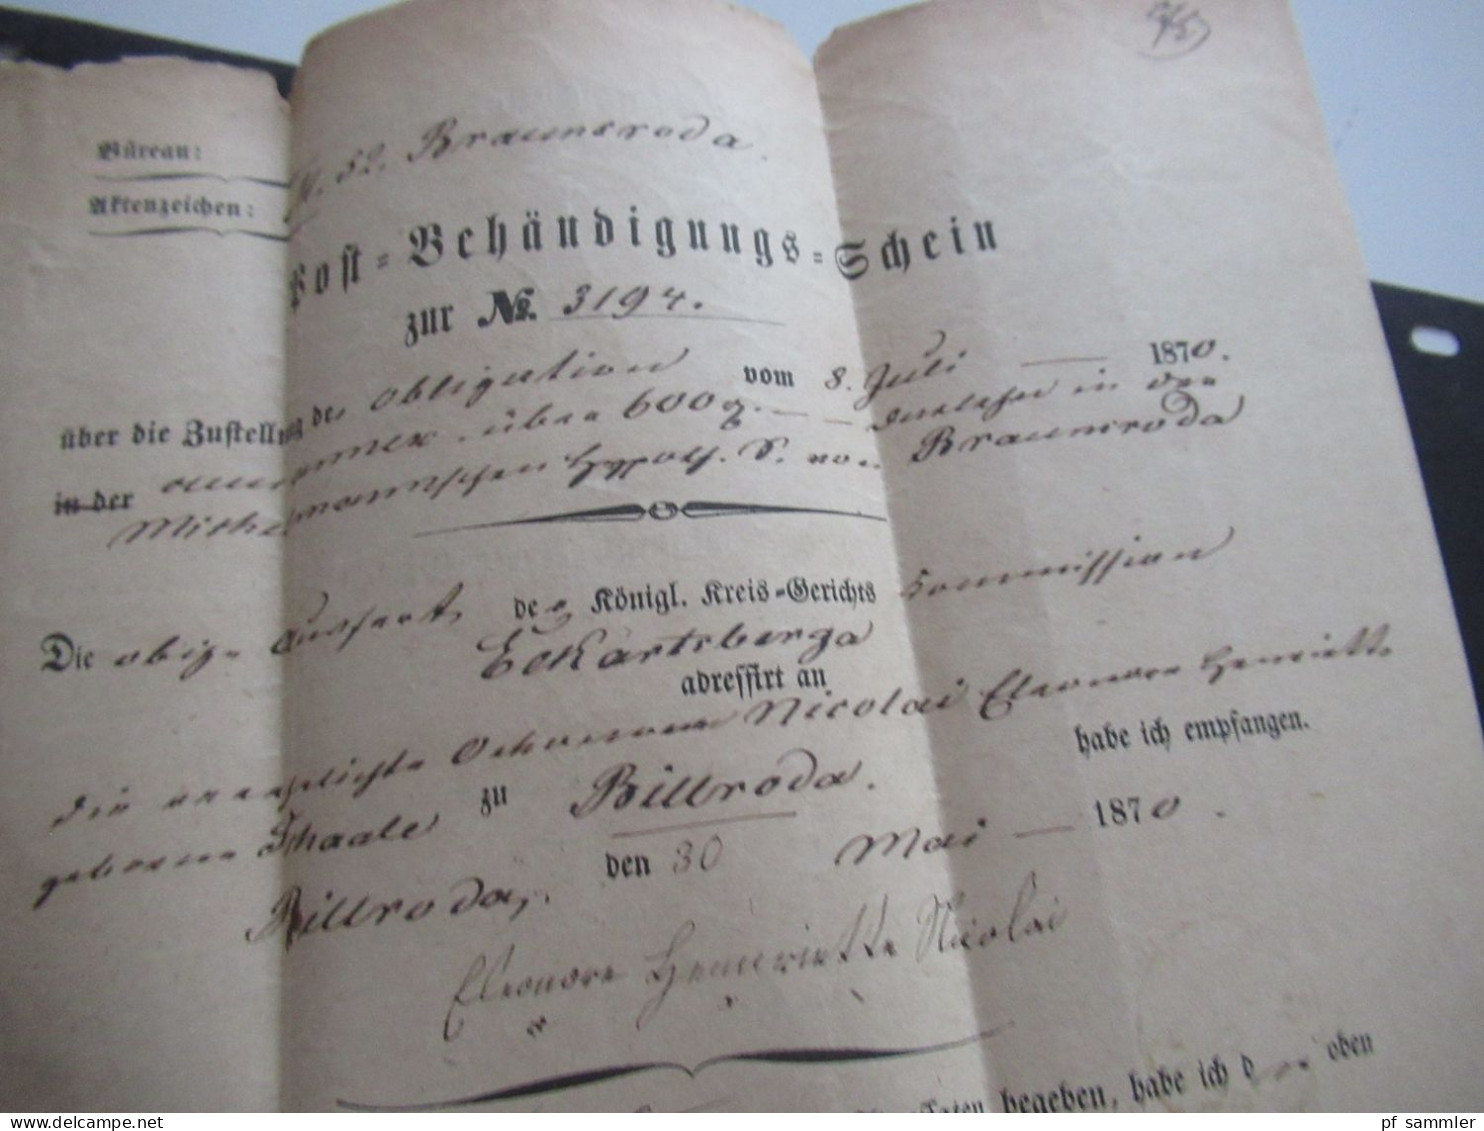 52. Braunsroda.
Büreau:
Aktenzeichen:
Post-Behändigungs-Schein
zur No. 3194.
über die Zustellung der Obligation vom 8. Juli 1870.
in der über 600 in der
hypoth. S. von Braunsroda
Die obige Ausfert. der Königl. Kreis-Gerichts Kommission
Eckartsberga
adressirt an
die verehelichte Nicolai Eleonore Henriette
geborene Thaale zu Billroda. habe ich empfangen.
Billroda, den 30 Mai 1870.
Eleonore Henriette Nicolai
begeben, habe ich d oben
pf sammler
delcampe.net